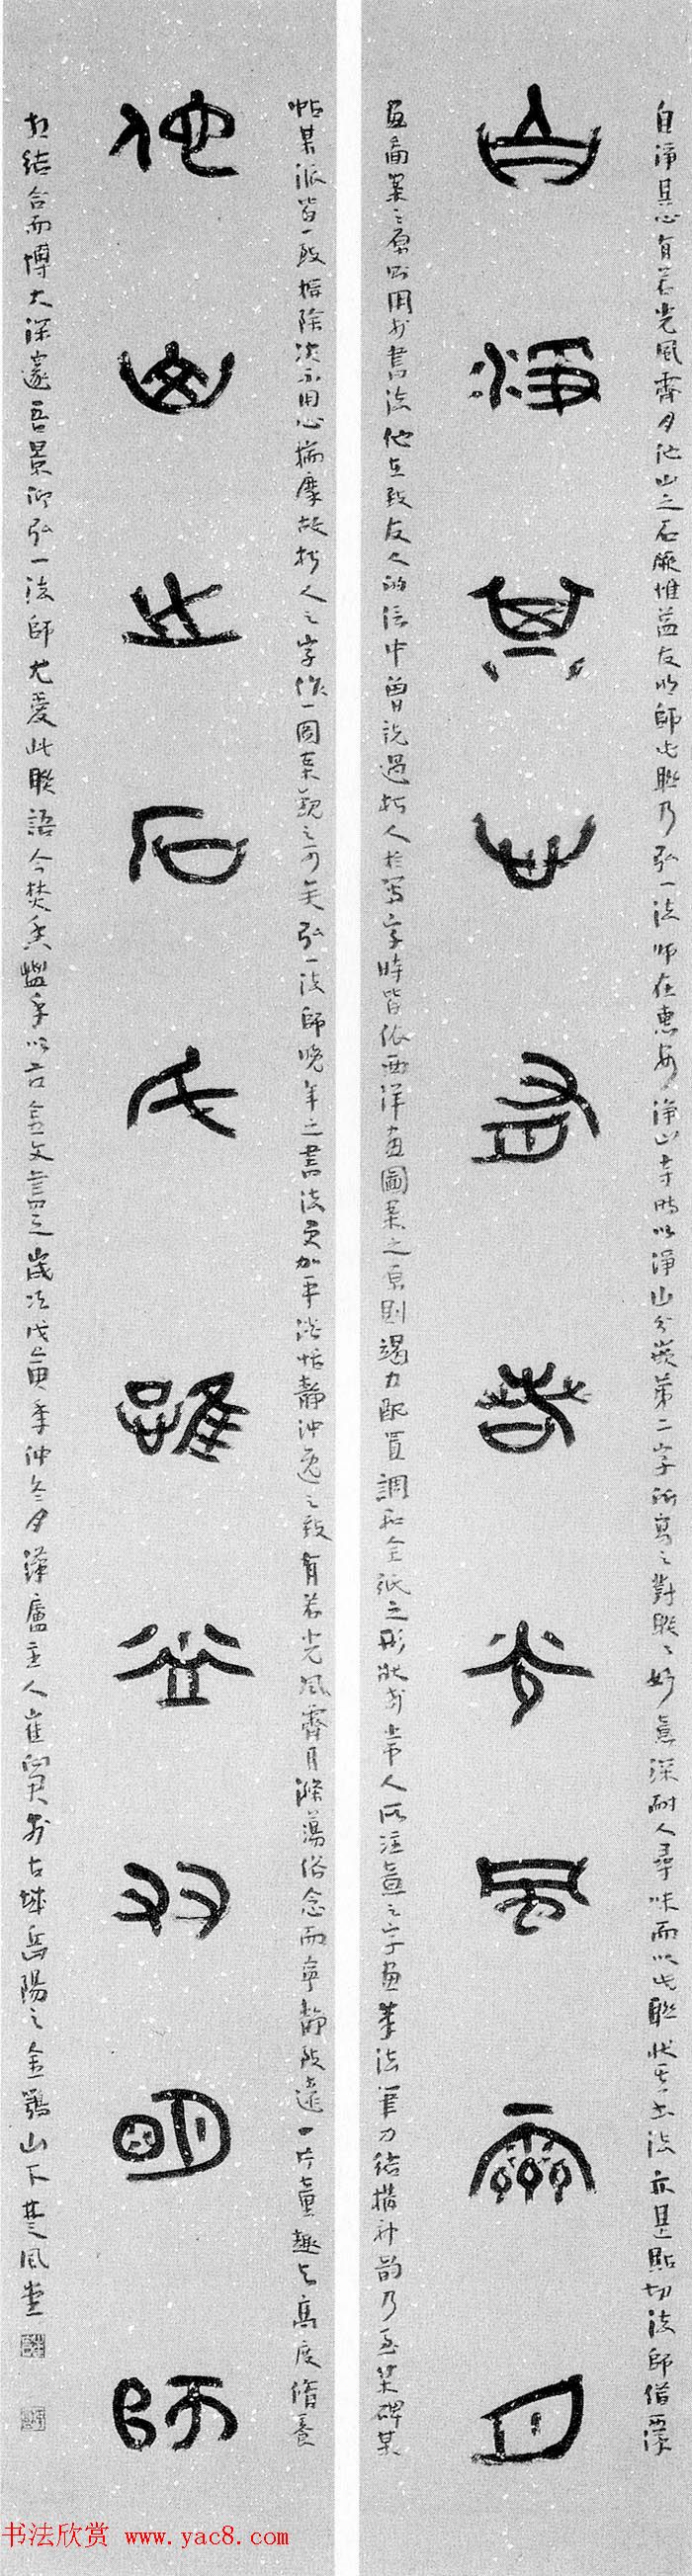 自淨其心有若光風霽月
他山之石厥惟益友明師
自淨其心有若光風霽月他山之石厥惟益友明師此聯乃弘一法師在惠安淨山寺時以淨山分嵌第二字所寫之對聯聯妙意深耐人尋味而以此聯狀其書法亦是貼切法師借西洋
畫圖案之原則用於書法他在致友人的信中曾說過朽人於寫字時皆依西洋畫圖案之原則竭力配置調和全紙之形狀於常人所注意之字畫筆法筆力結構神韵乃至某碑某
帖某派皆一致摒除決不用心揣摩故朽人之字作一圖案觀之可矣弘一法師晚年之書法更加平淡恬靜沖逸之致有若光風霽月滌蕩俗念而寧靜致遠一片童趣與高度修養
相結合而博大深邃吾景仰弘一法師尤愛此聯語今焚香盥手以古金文書之歲次戊寅年仲冬月漢廬主人崔 於古城岳陽之金鶚山下楚風堂
书法欣赏 www.yac8.com